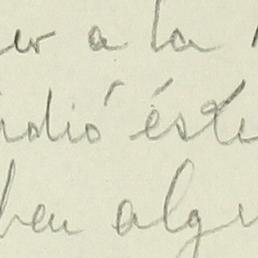 er a la
ndió éste
ben algu